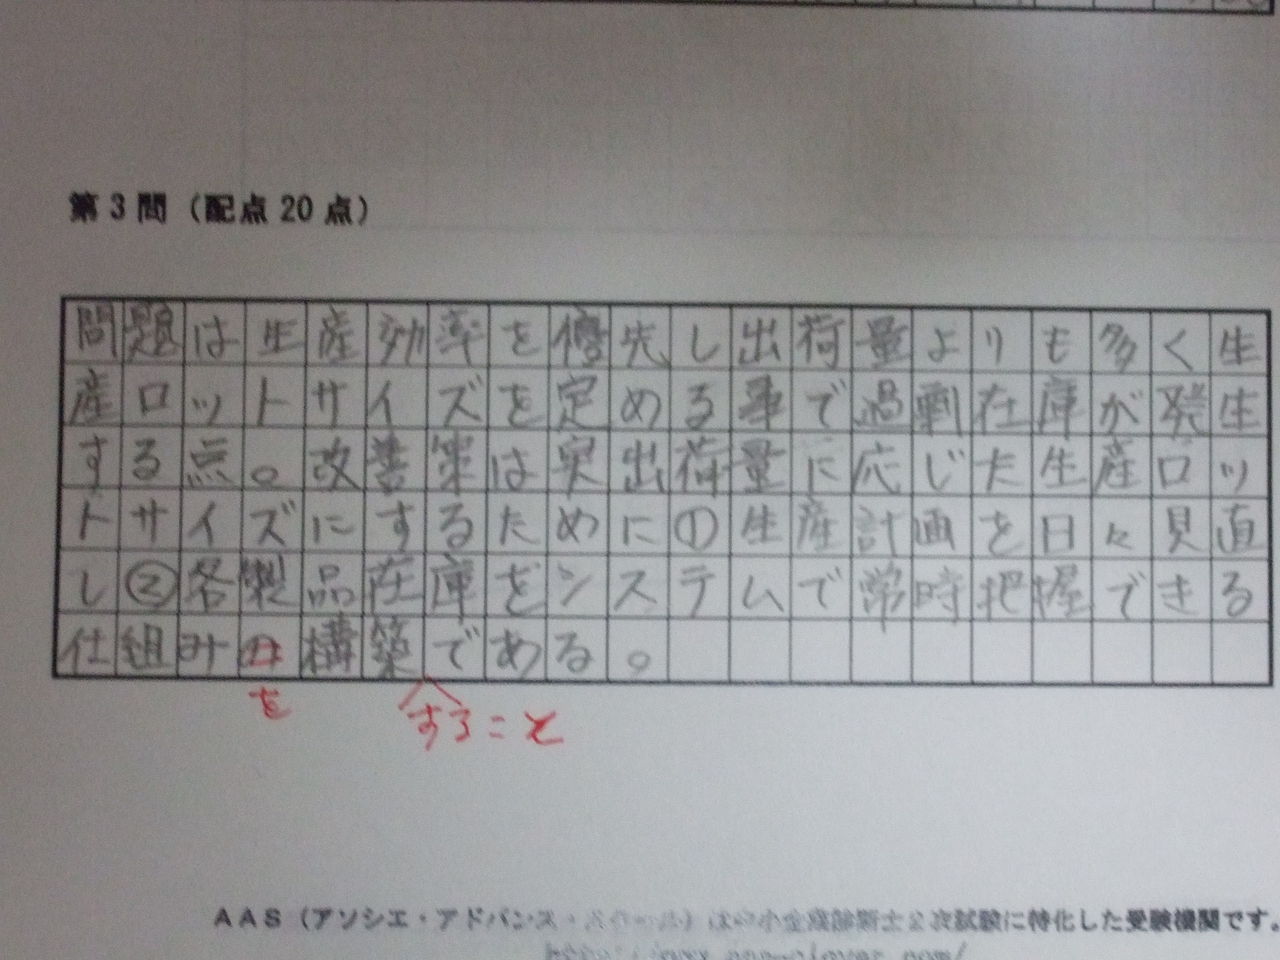 第3問（配点20点）
問題は生産効率を優先し出荷量よりも多く生
産ロットサイズを定める事で過剰在庫が発生
する点。改善策は実出荷量に応じた生産ロッ
トサイズにするために①生産計画を日々見直
し②各製品在庫をシステムで常時把握できる
仕組み構築である。
を
すること
AAS（アソシエ・アドバンス・ は中小企業診断士2次試験に特化した受験機関です。